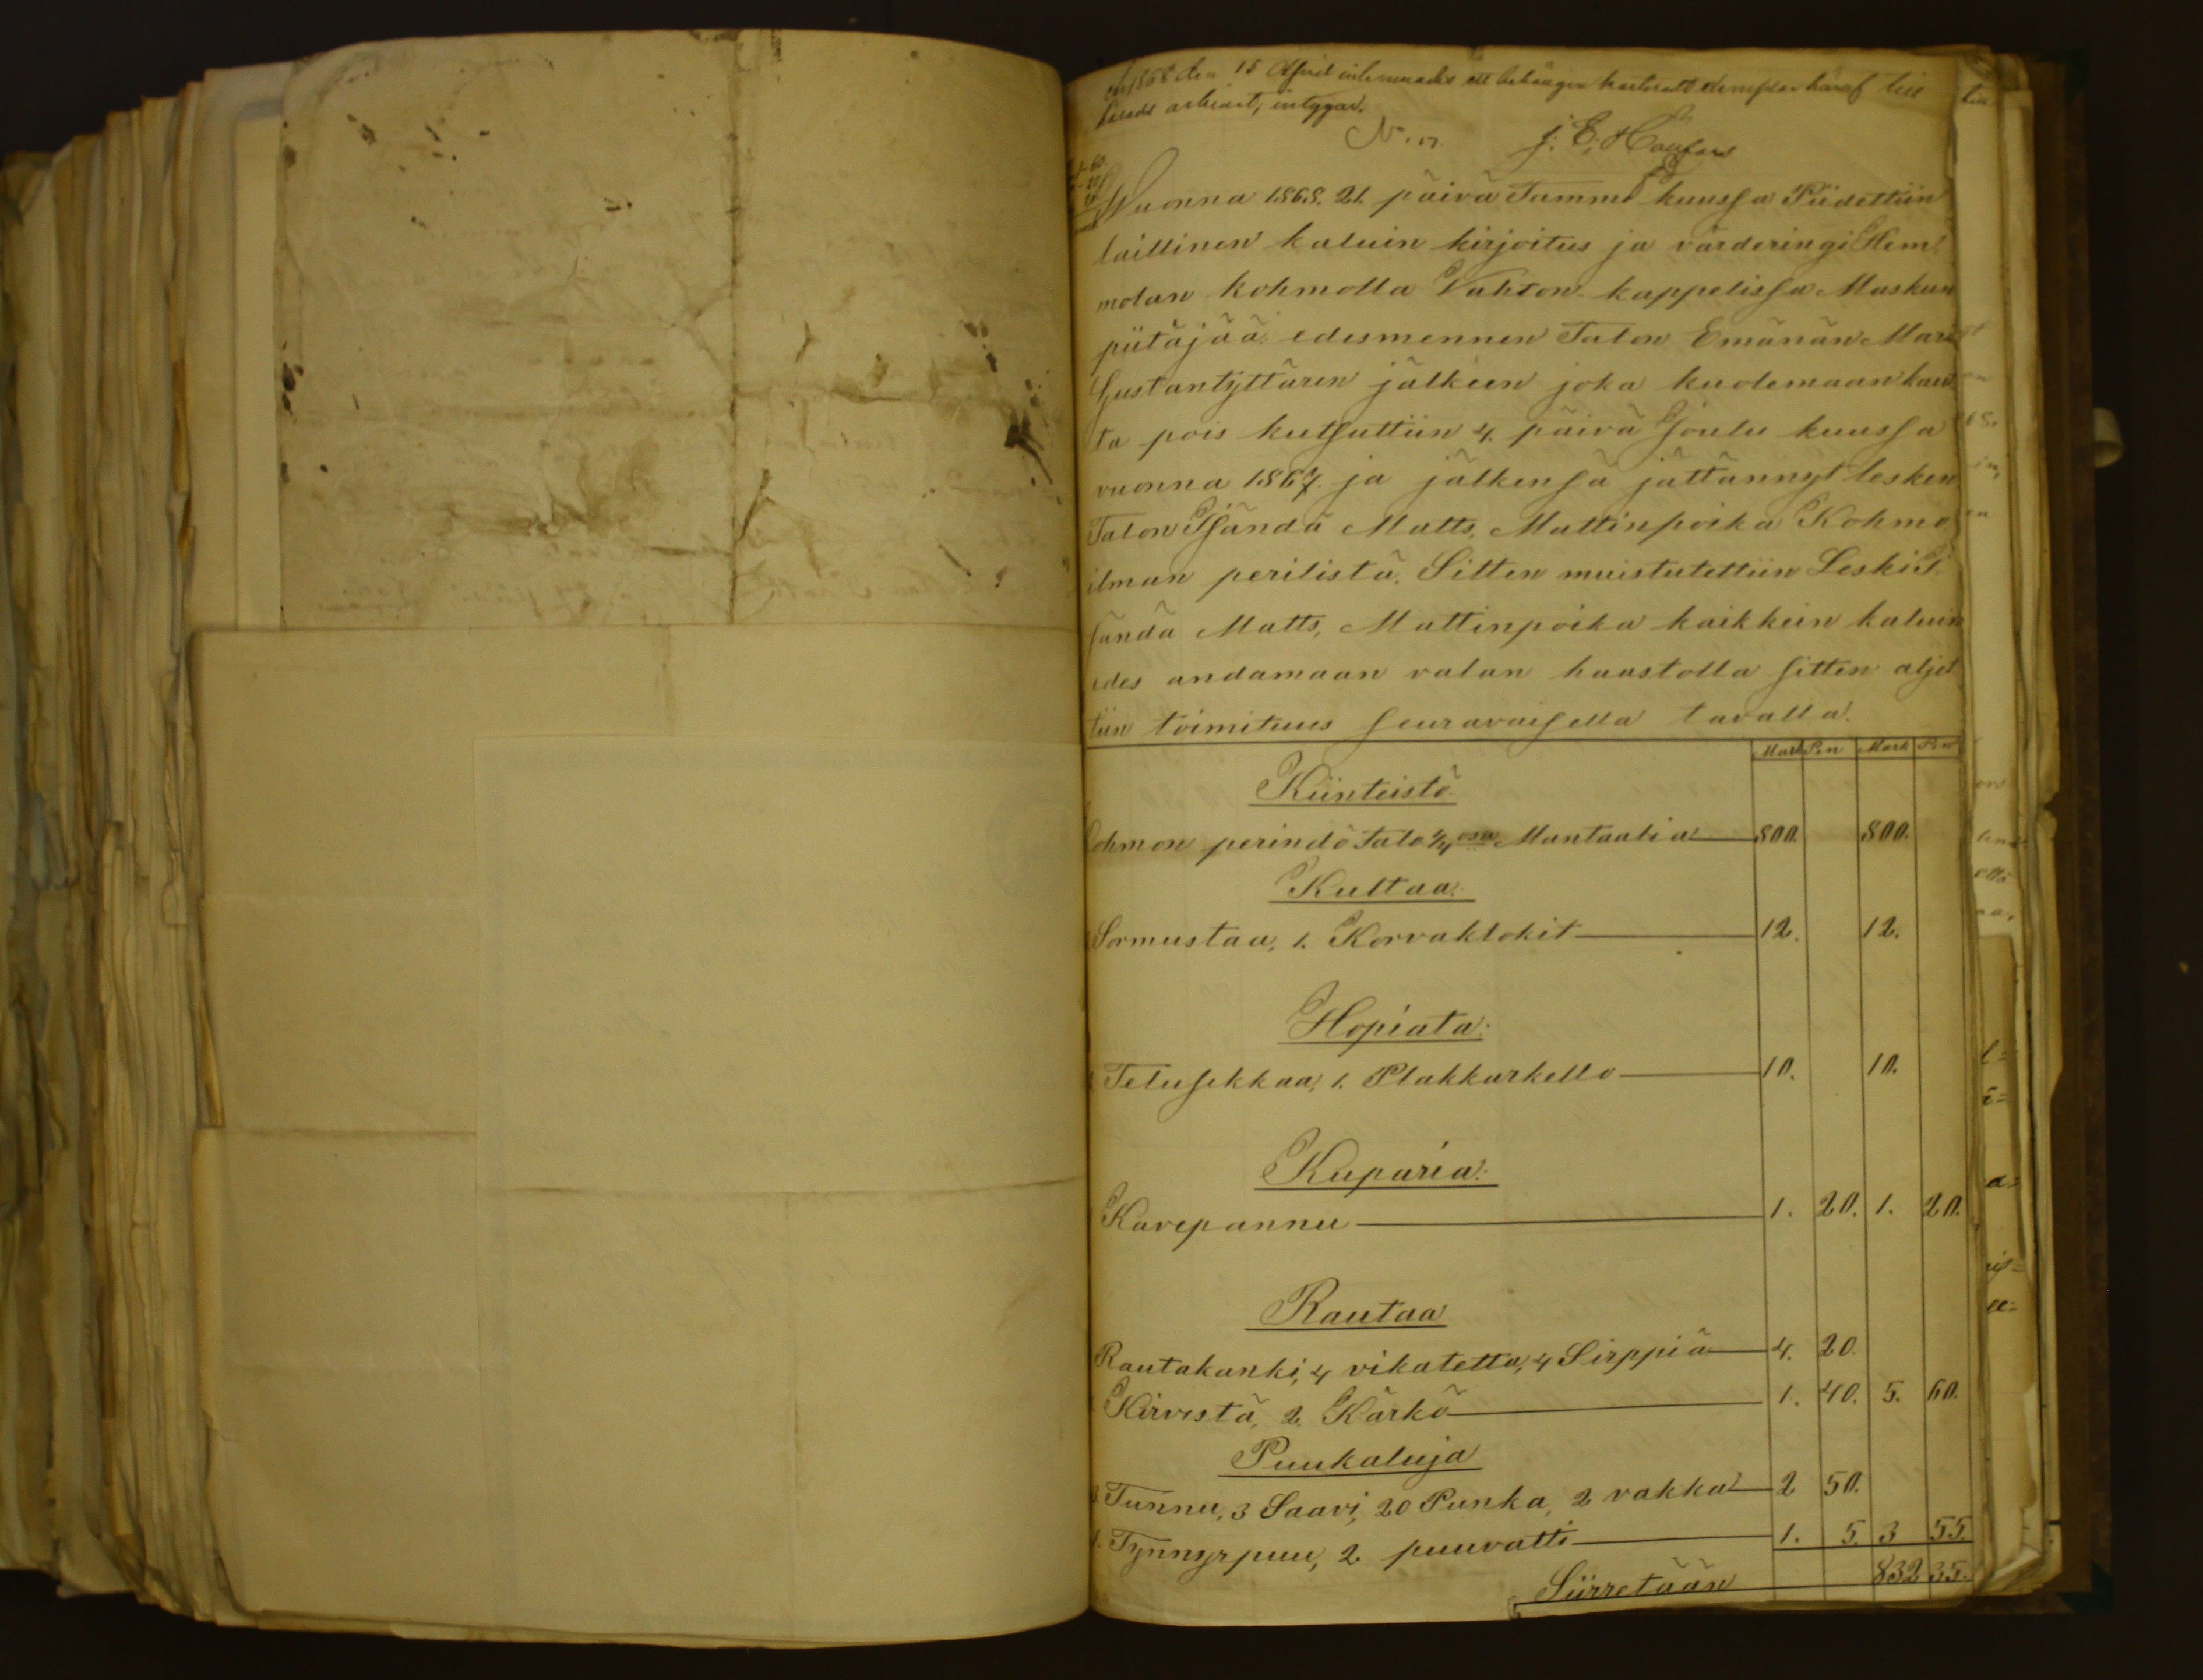 1868 den 15 April inlemnades ett behörigen exemplar häraf till
härads arkivet, intygar.
No. 17. J. E.
Wuonna 1868. 21. päivä Tammi kuussa Piidettiin
laillinen kaluin kirjoitus ja värderingi Hem¨
molan kohmolla Vahton kappelissa Maskun
piitäjää, edesmennen Talon Emänän Mari
Gustantyttären jälkeen joka kuolemaan kaut
ta pois kutsuttiin 4. päivä Joulu kuussa
vuonna 1867. ja jälkensä jättännyt lesken
Talon Isändä Matts, Mattinpoika Kohmo
ilman perilistä. Sitten muistutettiin Leski I.
sändä Matts, Mattinpoika kaikkein kaluin
edes andamaan valan haastolla sitten aljet
tiin toimituus seuravaisella tavalla.
Mark Pen Mark Pen
Kiinteistö.
Kohmon perindö Talo 1/4 osa Mantaalia 800. 800.
Kultaa.
Sormustaa, 1. Korvaklokit 12. 12.
Hopiata.
Telusikkaa, 1. Plakkarkello 10. 10.
Kuparia.
Kavepannu 1. 20. 1. 20.
Rautaa
Rautakanki, 4 vikatetta, 4 Sirppiä 4. 20.
Kirvestä, 2. Kärkö 1. 40. 5. 60.
Puukaluja
3. Tunnu, 3 Saavi, 20 Punka, 2 vakka 2 50.
1. Tynnyrpuu, 2 puuvatti 1. 5. 3 55.
Siirretään 832 35.